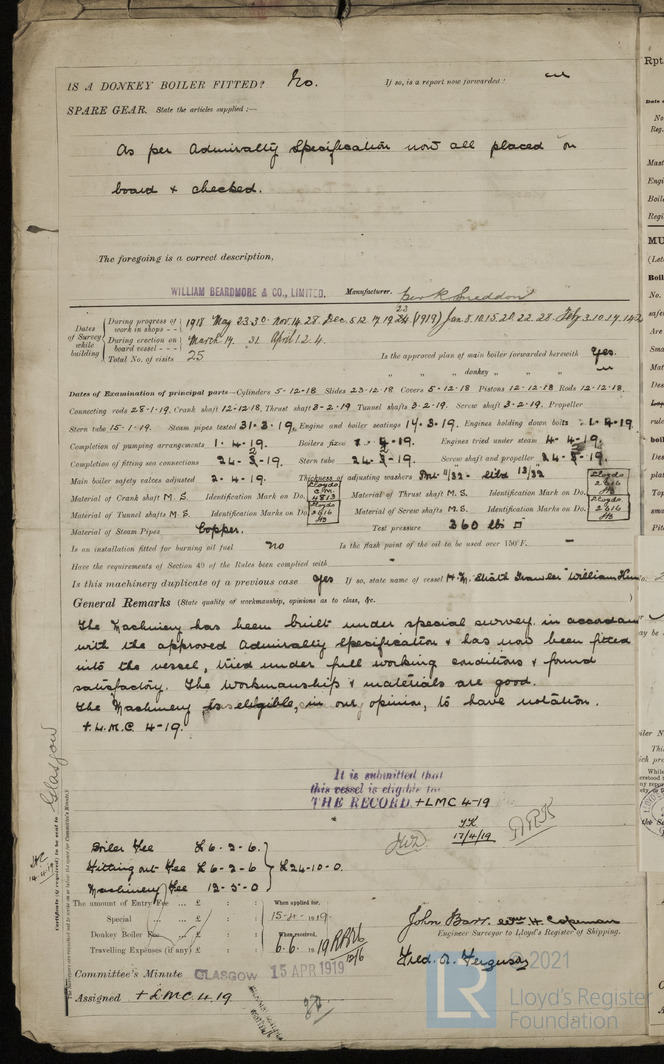 IS A DONKEY BOILER FITTED? No. If so, is a report now forwarded?
SPARE GEAR. State the articles supplied:—
As per Admiralty Specification now all placed on
board & checked.
The foregoing is a correct description,
WILLIAM BEARDMORE & CO., LIMITED. Manufacturer.
Dates of Survey while building
During progress of work in shops - - 1918 May 23.30. Nov. 14.28. Dec. 5.12.17.19 (1919) Jan. 8.10.15.20.22.28. Feby 3.10.17.
During erection on board vessel - - March 14. 31. April 1.2.4.
Total No. of visits 25 Is the approved plan of main boiler forwarded herewith Yes.
" " " donkey " " "
Dates of Examination of principal parts—Cylinders 5-12-18 Slides 23-12-18 Covers 5-12-18 Pistons 12-12-18 Rods 12-12-18.
Connecting rods 28-1-19. Crank shaft 12-12-18. Thrust shaft 3-2-19. Tunnel shafts 3-2-19. Screw shaft 3-2-19. Propeller
Stern tube 15-1-19. Steam pipes tested 31-3-19. Engine and boiler seatings 14-3-19. Engines holding down bolts 1-4-19.
Completion of pumping arrangements 1-4-19. Boilers fixed Engines tried under steam 4-4-19.
Completion of fitting sea connections 24-3-19. Stern tube 24-3-19. Screw shaft and propeller 24-3-19.
Main boiler safety valves adjusted 2-4-19. Thickness of adjusting washers Port 11/32 - Stbd 13/32
Material of Crank shaft M.S. Identification Mark on Do. Lloyds 4813 Material of Thrust shaft M.S. Identification Mark on Do. Lloyds 2616 HB
Material of Tunnel shafts M.S. Identification Marks on Do. Lloyds 2616 HB Material of Screw shafts M.S. Identification Marks on Do. Lloyds 2616 HB
Material of Steam Pipes Copper. Test pressure 360 lbs □
Is an installation fitted for burning oil fuel no Is the flash point of the oil to be used over 150°F. -
Have the requirements of Section 49 of the Rules been complied with -
Is this machinery duplicate of a previous case yes If so, state name of vessel H.M. Strath Trawler "William
General Remarks (State quality of workmanship, opinions as to class, &c.
The Machinery has been built under special survey in
with the approved Admiralty Specification & has now been fitted
into the vessel, tried under full working conditions & found
satisfactory. The workmanship & materials are good.
The Machinery is eligible, in our opinion, to have notation.
+ L.M.C. 4-19.
It is submitted that
this vessel is eligible for
THE RECORD. + LMC 4-19
17/4/19
Boiler Fee £ 6-2-6.
Fitting out Fee £ 6-2-6 £24-10-0.
Machinery Fee 12-5-0
The amount of Entry Fee ... £ : : When applied for,
Special ... £ : :
Donkey Boiler Fee ... £ : : When received,
Travelling Expenses (if any) £ : : 6.6.19
John Barr. Wm H. Copeman
Engineer Surveyor to Lloyd's Register of Shipping.
Fred. A. Ferguson
Committee's Minute GLASGOW 15 APR 1919
Assigned + LMC. 4.19
Certificate (if required) to be sent to Glasgow
2021
LR
Lloyd's Register
Foundation